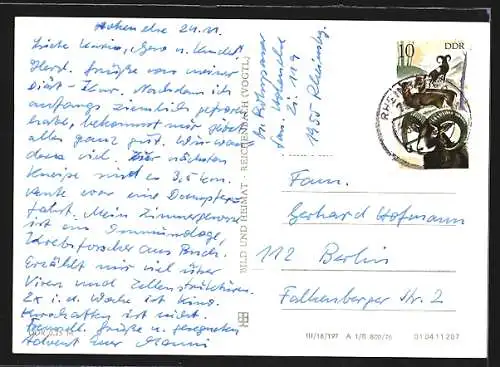 Hohenelse 24.11.
Liebe Karin, Gero u. Kinder!
Herzl. Grüße von meiner
Diät-Kur. Nachdem ich
anfangs ziemlich gefroren
habe, bekommt mir jetzt
alles ganz gut. Wir wandern
viel. Zur nächsten
Kneipe sind es 3,5 km.
Heute war eine Dampfer-
fahrt. Mein Zimmergenosse
ist ein Immunologe,
Krebsforscher aus Buch.
Erzählt mir viel über
Viren und Zellenstrukturen.
2x i. d. Woche ist Kino.
ist nicht.
Grüße u. gesegneten
Advent Euer
BILD UND HEIMAT · REICHENBACH (VOGTL)
Zi. 119
1955 Rheinsberg
10 DDR
RHEINSBERG
Fam.
Gerhard Hofmann
112 Berlin
Falkenberger Str. 2
III/18/197 A 1/B 800/76 01 04 11 207